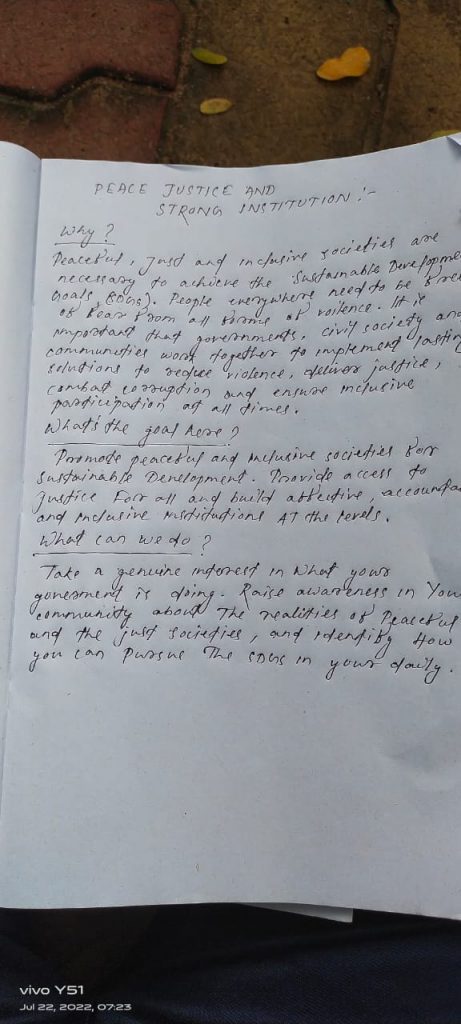 PEACE JUSTICE AND
STRONG INSTITUTION :-
Why ?
Peaceful, Just and inclusive societies are
necessary to achieve the Sustainable Developme
Goals (SDGs). People everywhere need to be free
of fear from all forms of voilence. It is
important that governments, civil society and
communities work together to implement lasting
solutions to reduce violence, deliver justice,
combat corruption and ensure inclusive
participation at all times.
What's the goal here ?
Promote peaceful and inclusive societies for
Sustainable Development. Provide access to
Justice For all and build affective, accounta
and inclusive institutions AT the levels.
What can we do ?
Take a genuine interest in What your
government is doing. Raise awareness in You
community about The realities of Peaceful
and the just societies, and identify How
you can Pursue The SDGs in your daily.
vivo Y51
Jul 22, 2022, 07:23